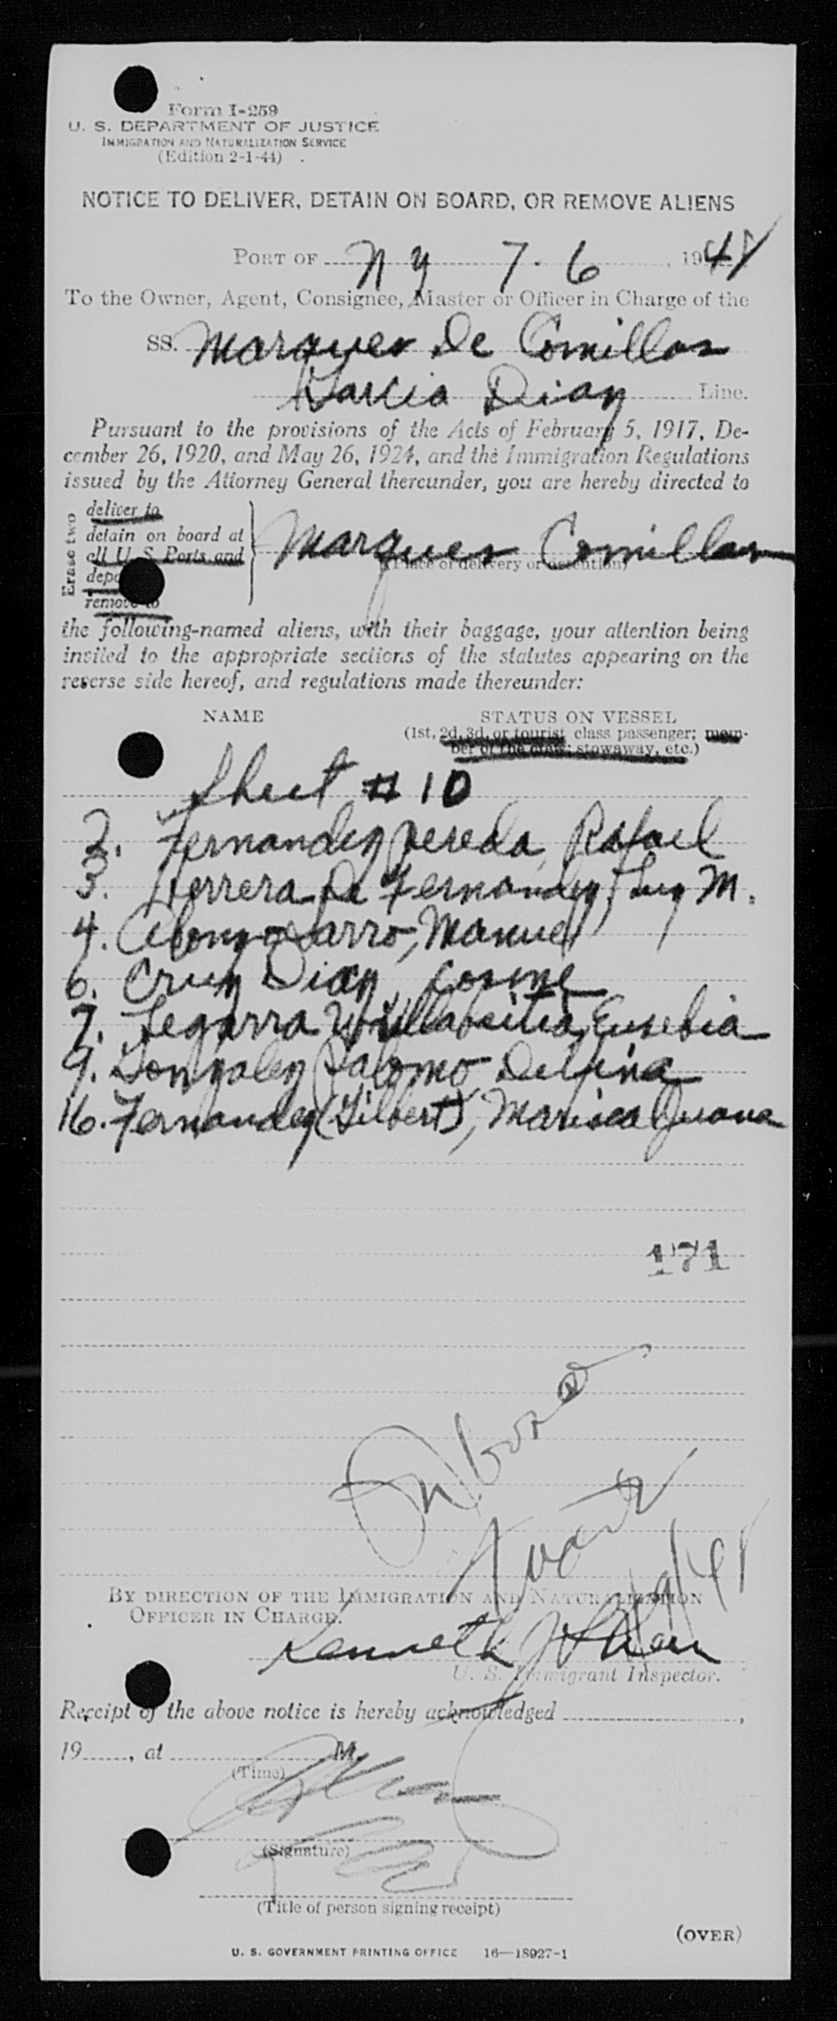 Form I-259
U. S. DEPARTMENT OF JUSTICE
IMMIGRATION AND NATURALIZATION SERVICE
(Edition 2-1-44)
NOTICE TO DELIVER, DETAIN ON BOARD, OR REMOVE ALIENS
PORT OF N Y 7-6, 1948
To the Owner, Agent, Consignee, Master or Officer in Charge of the
SS. Marques De Comillas
Garcia Diaz Line.
Pursuant to the provisions of the Acts of February 5, 1917, De-
cember 26, 1920, and May 26, 1924, and the Immigration Regulations
issued by the Attorney General thereunder, you are hereby directed to
Erase two
deliver to
detain on board at
all U. S. Ports and
remove to
Marques Comillas
(Place of delivery or detention)
the following-named aliens, with their baggage, your attention being
invited to the appropriate sections of the statutes appearing on the
reverse side hereof, and regulations made thereunder:
NAME STATUS ON VESSEL
(1st, 2d, 3d, or tourist class passenger; mem-
ber of the crew; stowaway, etc.)
Sheet # 10
2. Fernandez Pereda, Rafael
3. Herrera De Fernandez, Luz M.
4. Alonso Sarro, Manuel
6. Cruz Diaz, Cosme
7. Legarra Eusebia
9. Gonzalez Palomo Delfina
16. Fernandez (Gilbert), Juana
171
On board
By DIRECTION OF THE IMMIGRATION AND NATURALIZATION
OFFICER IN CHARGE.
Kenneth J
U. S. Immigrant Inspector.
Receipt of the above notice is hereby acknowledged ,
19 , at M.
(Time)
(Signature)
(Title of person signing receipt)
(OVER)
U. S. GOVERNMENT PRINTING OFFICE 16—18927-1